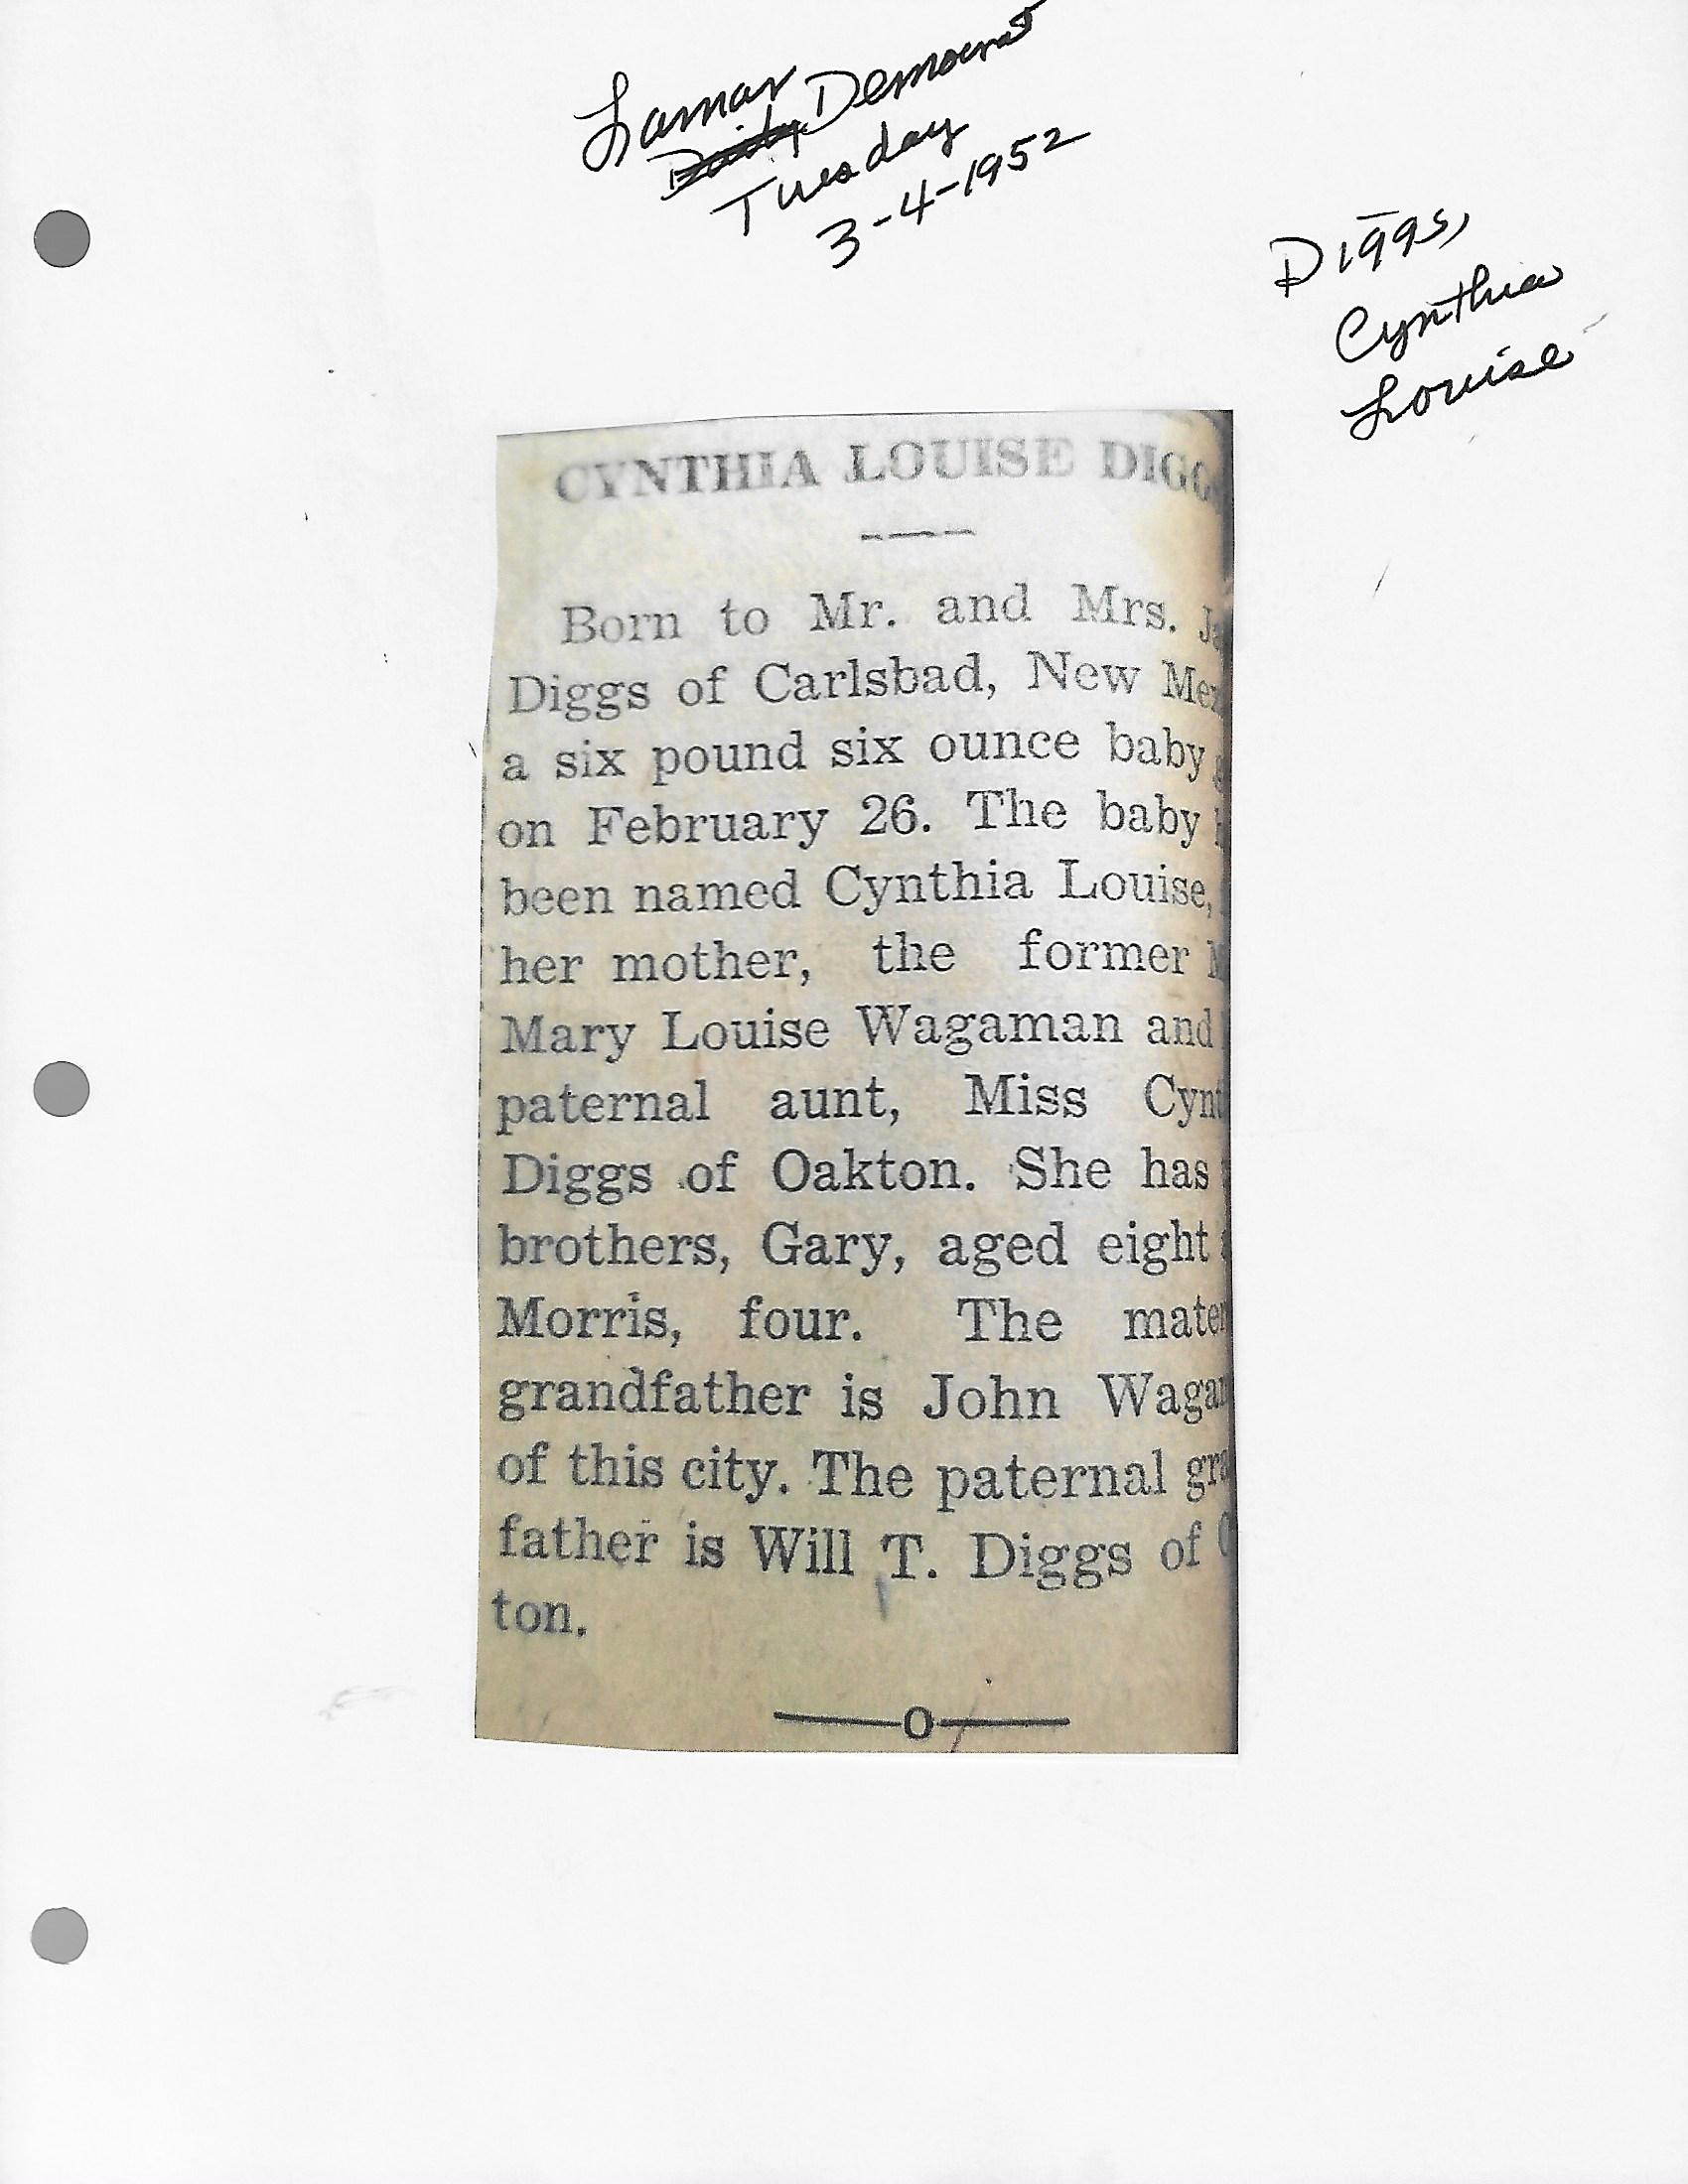 Lamar
Daily Democrat
Tuesday
3-4-1952
Diggs,
Cynthia
Louise
CYNTHIA LOUISE DIGG
Born to Mr. and Mrs. Ja
Diggs of Carlsbad, New Mex
a six pound six ounce baby
on February 26. The baby
been named Cynthia Louise,
her mother, the former
Mary Louise Wagaman and
paternal aunt, Miss Cynt
Diggs of Oakton. She has
brothers, Gary, aged eight
Morris, four. The mater
grandfather is John Wagam
of this city. The paternal gra
father is Will T. Diggs of
ton.